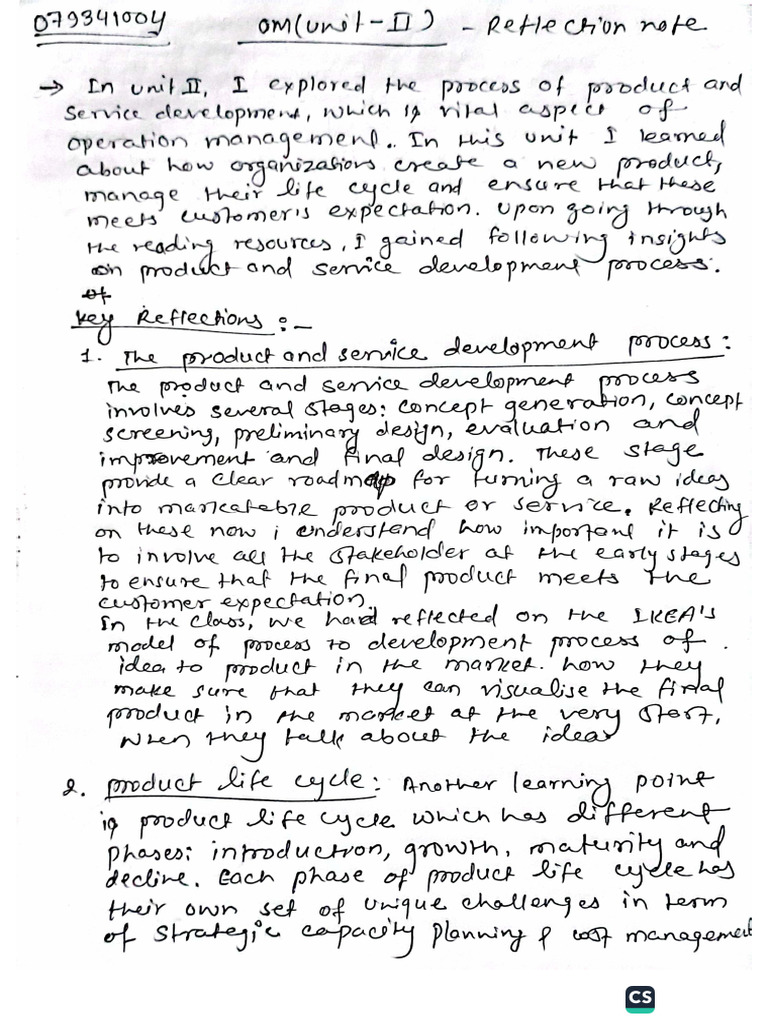 079341004 OM(Unit-II) - Reflection note
→ In unit II, I explored the process of product and
service development, which is vital aspect of
operation management. In this unit I learned
about how organizations create a new product,
manage their life cycle and ensure that these
meets customer's expectation. Upon going through
the reading resources, I gained following insights
on product and service development process.
of
Key Reflections :-
1. The product and service development process:
The product and service development process
involves several stages: concept generation, concept
screening, preliminary design, evaluation and
improvement and final design. These stage
provide a clear roadmap for turning a raw ideas
into marketable product or service. Reflecting
on these now i understand how important it is
to involve all the stakeholder at the early stages
to ensure that the final product meets the
customer expectation.
In the class, we had reflected on the IKEA's
model of process to development process of
idea to product in the market. how they
make sure that they can visualise the final
product in the market at the very start,
when they talk about the idea
2. product life cycle: Another learning point
is product life cycle which has different
phases: introduction, growth, maturity and
decline. Each phase of product life cycle has
their own set of unique challenges in term
of strategic capacity planning & cost management
CS